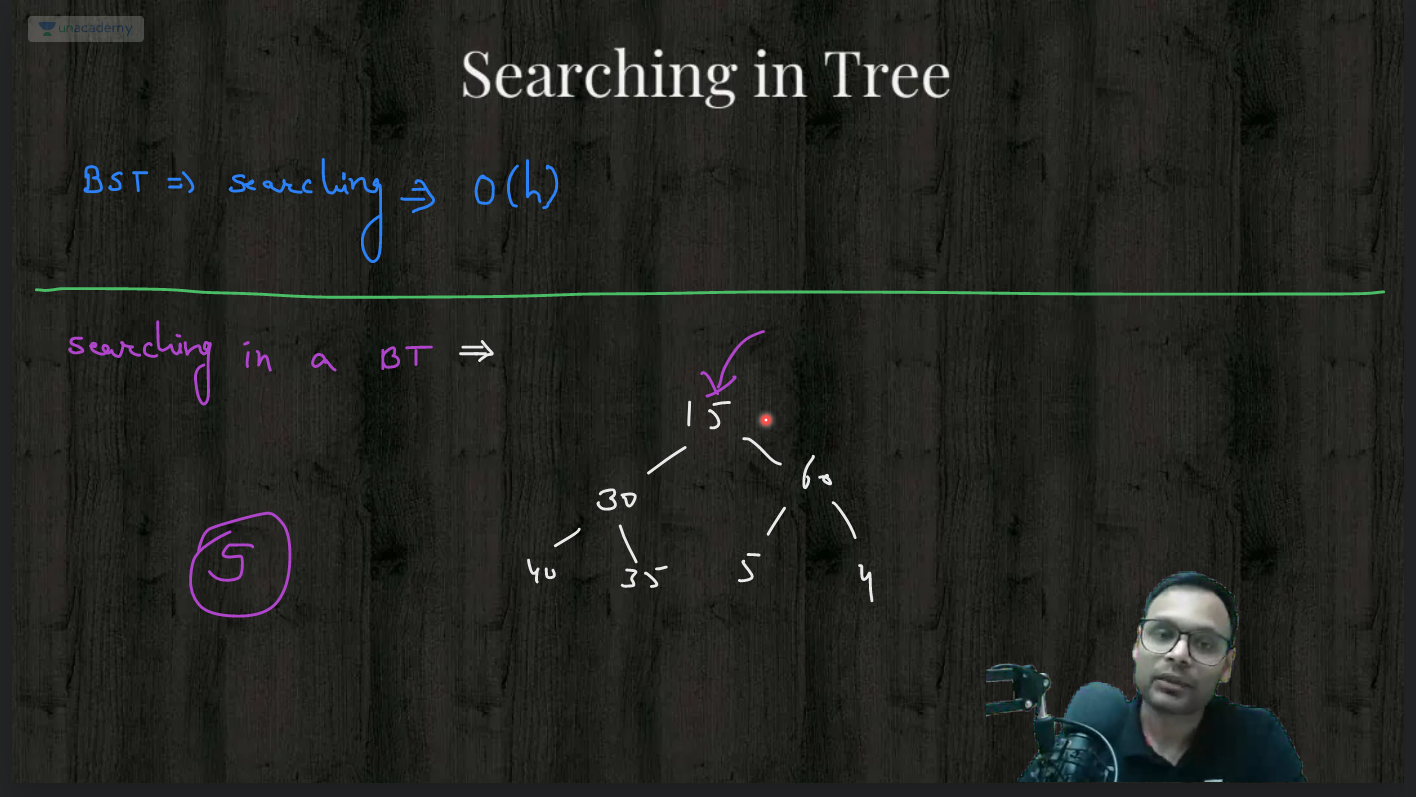 unacademy
Searching in Tree
BST => searching => O(h)
searching in a BT =>
15
30 60
40 35 5 4
5